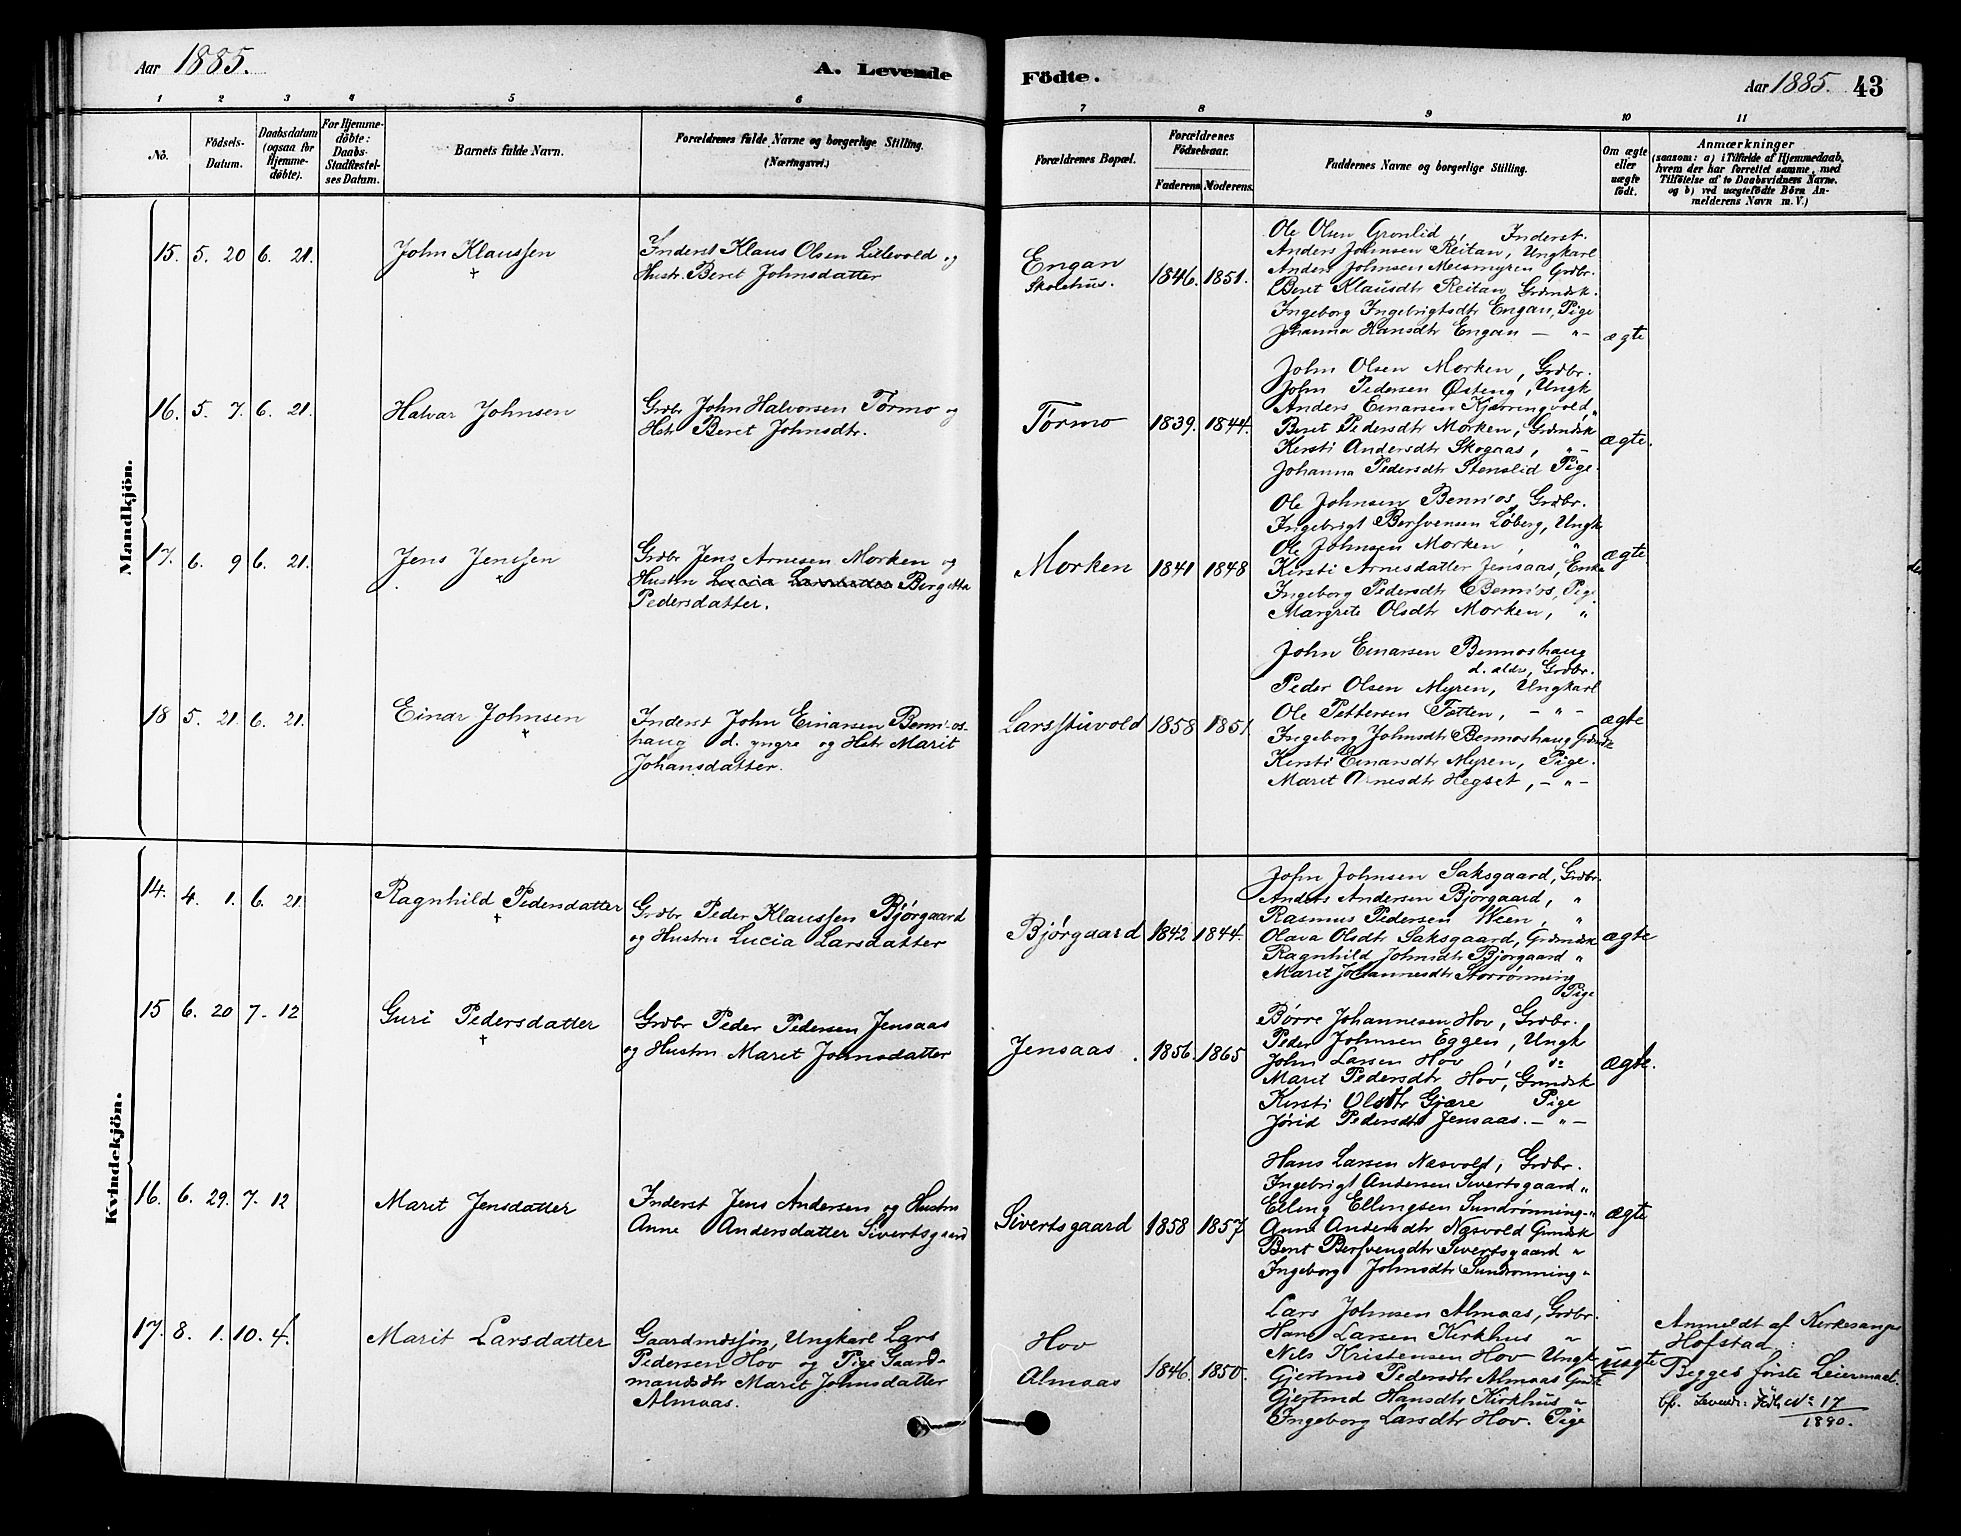 Aar 1885.
A. Levende
Födte.
Aar 1885.
43
1 2 3 4 5 6 7 8 9 10 11
No.
Födsels-
Datum.
Daabsdatum
(ogsaa for
Hjemme-
döbte).
For Hjemme-
döbte:
Daabs-
Stadfæstel-
ses Datum.
Barnets fulde Navn.
Forældrenes fulde Navne og borgerlige Stilling.
(Næringsvei.)
Forældrenes Bopæl.
Forældrenes
Födselsaar.
Faderens. Moderens.
Faddernes Navne og borgerlige Stilling.
Om ægte
eller
uægte
födt.
Anmærkninger
(saasom: a) i Tilfælde af Hjemmedaab,
hvem der har forrettet samme, med
Tilföielse af to Daabsvidners Navne.
og b) ved uægtefödte Börn An-
melderens Navn m. V.)
Mandkjön.
15. 5. 20 6. 21.
John Klaussen
†
Inderst Klaus Olsen Lillevold og
Hustr. Beret Johnsdatter
Engan
Skolehus.
1846. 1851.
Ole Olsen Grønlid, Inderst.
Anders Johnsen Reitan, Ungkarl
Anders Johnsen Meismyren Grdbr.
Beret Klausdtr Reitan, Grdmdsk.
Ingeborg Ingebrigtsdtr Engan, Pige
Johanna Hansdtr Engan — " —
ægte
16. 5. 7. 6. 21.
Halvar Johnsen
Grdbr John Halvorsen Tørmo og
Hstr Beret Johnsdtr.
Tørmo
1839. 1844.
John Olsen Morken, Grdbr.
John Pedersen Østeng, Ungk
Anders Einarsen Kjerringvold, "
Beret Pedersdtr Morken, Grdmdsk
Kirsti Andersdtr Skogaas, " —
Johanna Pedersdtr Stenslid Pige.
ægte.
17. 6. 9 6. 21.
Jens Jenssen
Grdbr Jens Arnesen Morken og
Hustru Lucia Larsdatter Bergitta
Pedersdatter.
Morken
1841 1848
Ole Johnsen Bennøs, Grdbr.
Ingebrigt Bersvensen Løberg, Ungk
Ole Johnsen Morken, "
Kirsti Arnesdatter Jensaas, Enke
Ingeborg Pedersdtr Bennøs, Pige
Margrete Olsdtr Morken, "
ægte
18 5. 21. 6. 21.
Einar Johnsen
†
Inderst John Einarsen Bennøs-
haug d. yngre og Hstr Marit
Johansdatter.
Larsstuvold
1858 1851
John Einarsen Bennoshaug
d. ældr, Grdbr.
Peder Olsen Myren, Ungkarl
Ole Pettersen Tøtten, — " —
Ingeborg Johnsdtr Bennoshaug Grdmdsk
Kirsti Einarsdtr Myren, Pige.
Marit Arnesdtr Hegset, — " —
ægte
Kvindekjön.
14. 4. 1. 6. 21.
Ragnhild Pedersdatter
†
Grdbr Peder Klaussen Bjørgaard
og Hustru Lucia Larsdatter
Bjørgaard
1842 1844.
John Johnsen Saksgaard, Grdbr.
Anders Andersen Bjørgaard, "
Rasmus Pedersen Ween, "
Olava Olsdtr Saksgaard, Grdmdsk
Ragnhild Johnsdtr Bjørgaard "
Marit Johannesdtr Storrønning
Pige
ægte
15 6. 20 7. 12
Guri Pedersdatter
†
Grdbr Peder Pedersen Jensaas
og Hustru Marit Johnsdatter
Jensaas.
1856. 1865
Børre Johannesen Hov, Grdbr.
Peder Johnsen Eggen, Ungk
John Larsen Hov, do
Marit Pedersdtr Hov, Grmdsk
Kirsti Olsdtr Gjære Pige
Jørid Pedersdtr Jensaas. — " —
ægte.
16. 6. 29. 7. 12
Marit Jensdatter
Inderst Jens Andersen og Hustru
Anne Andersdatter Sivertsgaard
Sivertsgaard
1858 1857
Hans Larsen Næsvold, Grdbr.
Ingebrigt Andersen Sivertsgaard "
Elling Ellingsen Sundrønning "
Anne Andersdtr Næsvold Grmdsk
Beret Bersvensdtr Sivertsgaard "
Ingeborg Johnsdtr Sundrønning "
ægte
17. 8. 1. 10. 4.
Marit Larsdatter
Gaardmdssøn, Ungkarl Lars
Pedersen Hov og Pige Gaard-
mandsdtr Marit Johnsdatter
Almaas.
Hov
Almaas
1846. 1850.
Lars Johnsen Almaas, Grdbr.
Hans Larsen Kirkhus "
Nils Kristensen Hov Ungk
Gjertrud Pedersdtr Almaas Grdk
Gjertrud Hansdtr Kirkhus "
Ingeborg Larsdtr Hov. Pige
uægte
Anmeldt af Kirkesanger
Hofstad.:
Begges første Leiermaal.
cfr. Levend: Fødte No 17
1890.